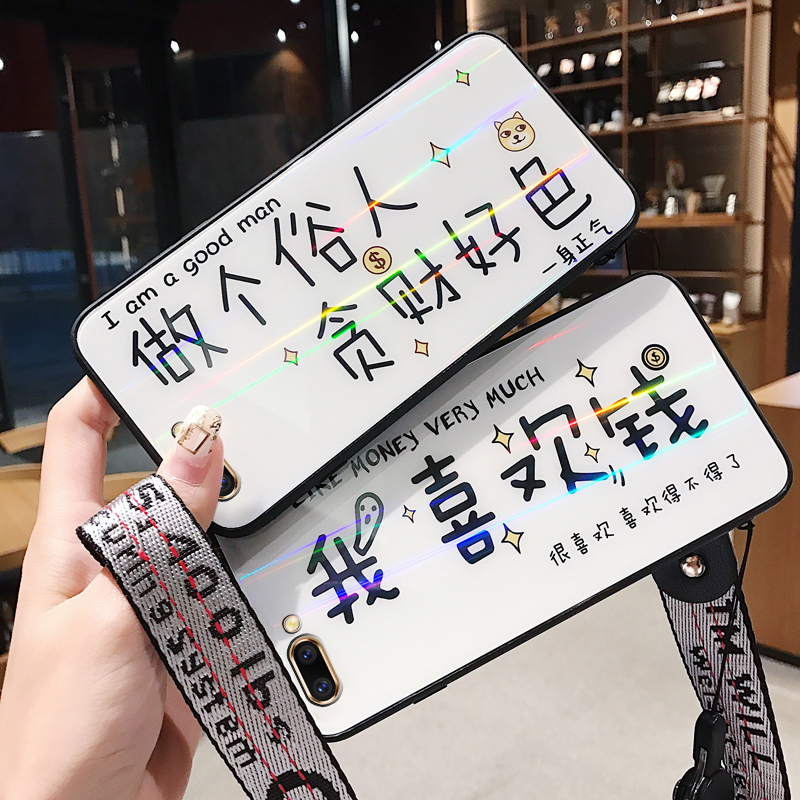 I am a good man
做个俗人
贪财好色
一身正气
LIKE MONEY VERY MUCH
我喜欢钱
很喜欢 喜欢得不得了
400lbs
system
WILL